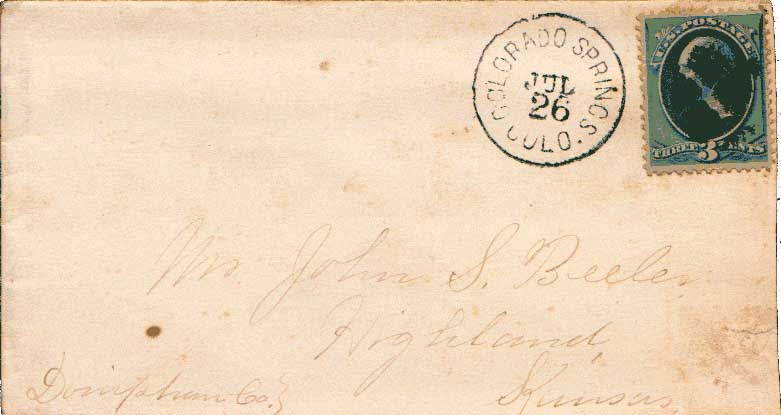 COLORADO SPRINGS
JUL
26
COLO.
U.S. POSTAGE
THREE 3 CENTS
Mr. John S. Beeler
Highland,
Doniphan Co.
Kansas